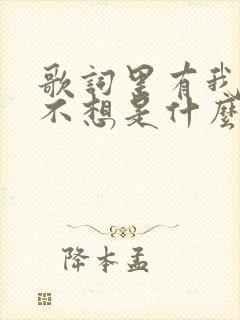 歌词里有我
不想是什麼
降本孟